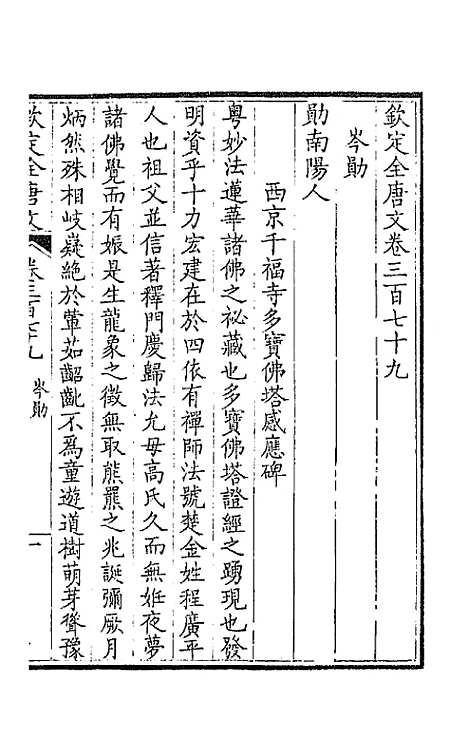 欽定全唐文卷三百七十九
岑勛
勛南陽人
西京千福寺多寶佛塔感應碑
粤妙法蓮華諸佛之祕藏也多寶佛塔證經之踴現也發
明資乎十力宏建在於四依有禪師法號楚金姓程廣平
人也祖父並信著釋門慶歸法允母高氏久而無姙夜夢
諸佛覺而有娠是生龍象之徵無取熊羆之兆誕彌厥月
炳然殊相岐嶷絕於葷茹齠齔不爲童遊道樹萌芽聳豫
欽定全唐文 卷三百七十九 岑勛 一